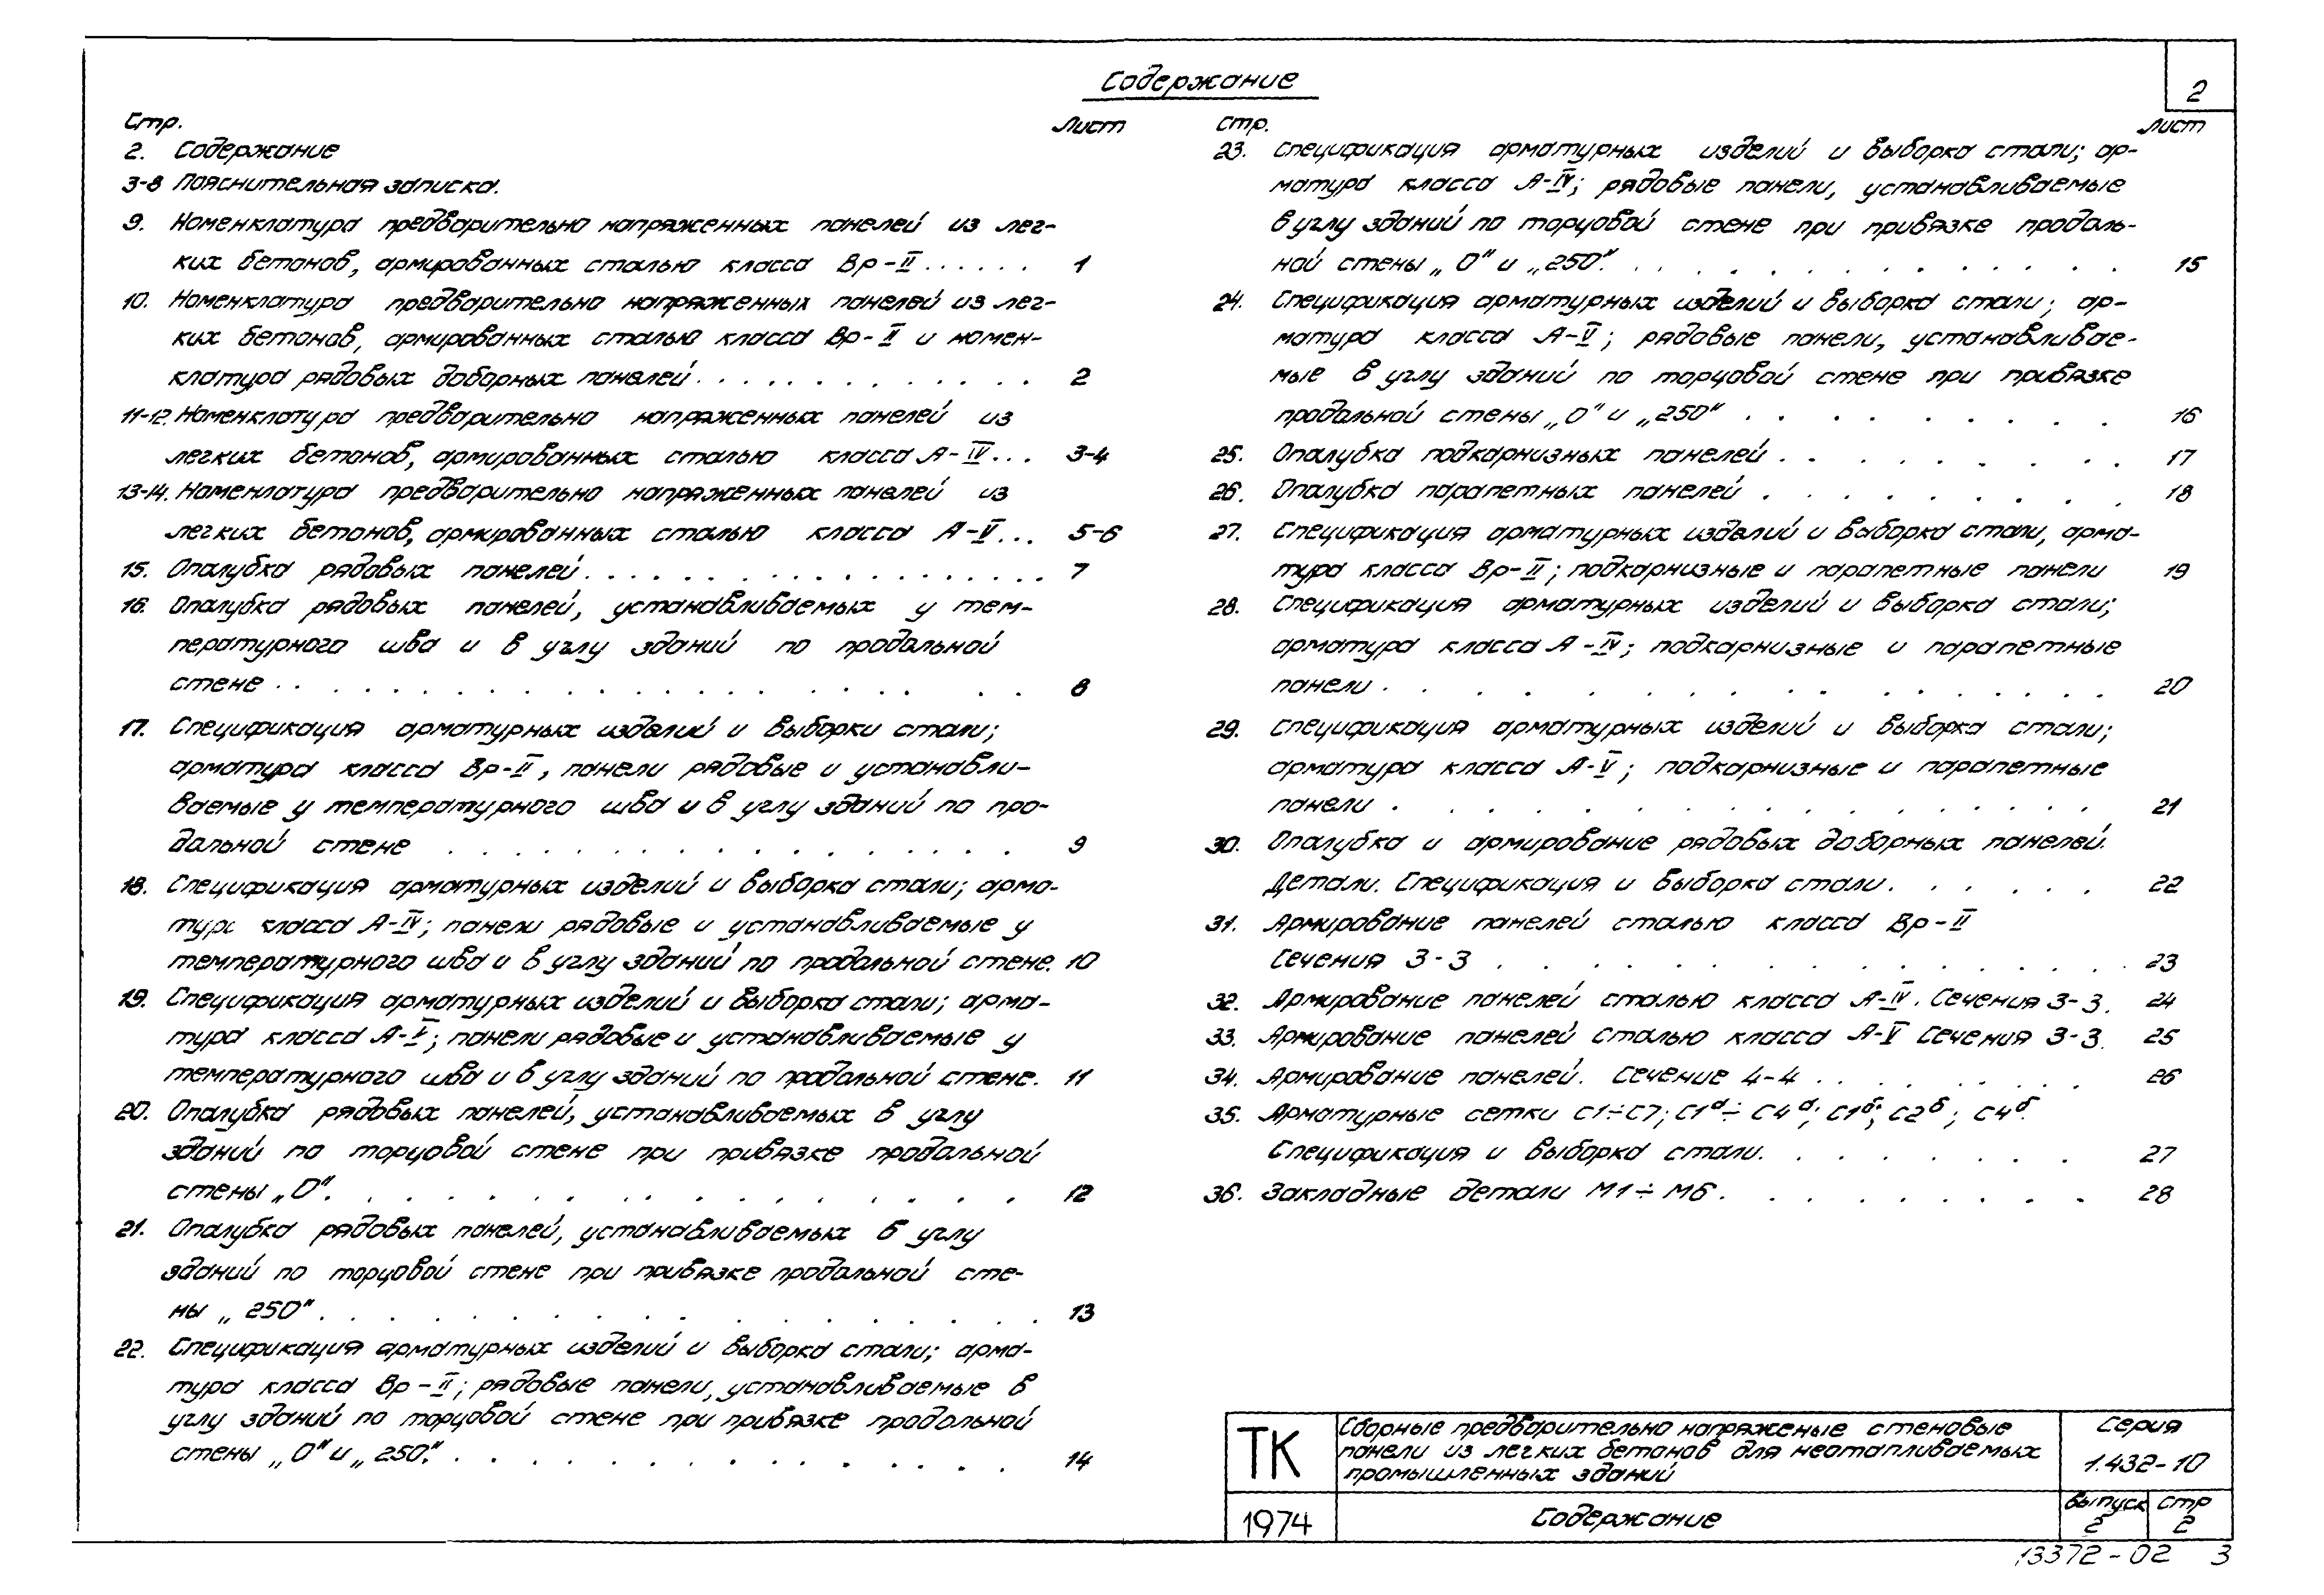 Содержание
2
Стр.
Лист
2. Содержание
3-8 Пояснительная записка.
9. Номенклатура предварительно напряженных панелей из лег-
ких бетонов, армированных сталью класса Вр-II ......
1
10. Номенклатура предварительно напряженных панелей из лег-
ких бетонов, армированных сталью класса Вр-II и номен-
клатура рядовых доборных панелей . . . . . . . . . . . .
2
11-12. Номенклатура предварительно напряженных панелей из
легких бетонов, армированных сталью класса А-IV...
3-4
13-14. Номенлатура предварительно напряженных панелей из
легких бетонов, армированных сталью класса А-V...
5-6
15. Опалубка рядовых панелей. . . . . . . . . . . . . . . .
7
16. Опалубка рядовых панелей, устанавливаемых у тем-
пературного шва и в углу зданий по продольной
стене . . . . . . . . . . . . . . . .
8
17. Спецификация арматурных изделий и выборки стали;
арматура класса Вр-II, панели рядовые и устанавли-
ваемые у температурного шва и в углу зданий по про-
дольной стене . . . . . . . . . . . . . . .
9
18. Спецификация арматурных изделий и выборка стали; арма-
тура класса А-IV; панели рядовые и устанавливаемые у
температурного шва и в углу зданий по продольной стене. 10
19. Спецификация арматурных изделий и выборка стали; арма-
тура класса А-V; панели рядовые и устанавливаемые у
температурного шва и в углу зданий по продольной стене. 11
20. Опалубка рядовых панелей, устанавливаемых в углу
зданий по торцовой стене при привязке продольной
стены „0“. . . . . . . . . . . . . . .
12
21. Опалубка рядовых панелей, устанавливаемых в углу
зданий по торцовой стене при привязке продольной сте-
ны „250“. . . . . . . . . . . . . . . .
13
22. Спецификация арматурных изделий и выборка стали; арма-
тура класса Вр-II; рядовые панели, устанавливаемые в
углу зданий по торцовой стене при привязке продольной
стены „0“ и „250“. . . . . . . . . . . . .
14
стр.
Лист
23. Спецификация арматурных изделий и выборка стали; ар-
матура класса А-IV; рядовые панели, устанавливаемые
в углу зданий по торцовой стене при привязке продоль-
ной стены „0“ и „250“. . . . . . . . . . . . .
15
24. Спецификация арматурных изделий и выборка стали; ар-
матура класса А-V; рядовые панели, устанавливае-
мые в углу зданий по торцовой стене при привязке
продольной стены „0“ и „250“ . . . . . . . . .
16
25. Опалубка подкарнизных панелей . . . . . . . . .
17
26. Опалубка парапетных панелей . . . . . . . . .
18
27. Спецификация арматурных изделий и выборка стали, арма-
тура класса Вр-II; подкарнизные и парапетные панели
19
28. Спецификация арматурных изделий и выборка стали;
арматура класса А-IV; подкарнизные и парапетные
панели . . . . . . . . . . . . . .
20
29. Спецификация арматурных изделий и выборка стали;
арматура класса А-V; подкарнизные и парапетные
панели . . . . . . . . . . . . . .
21
30. Опалубка и армирование рядовых доборных панелей.
Детали. Спецификация и выборка стали. . . . . .
22
31. Армирование панелей сталью класса Вр-II
Сечения 3-3 . . . . . . . . . . . . . .
23
32. Армирование панелей сталью класса А-IV. Сечения 3-3. 24
33. Армирование панелей сталью класса А-V Сечения 3-3. 25
34. Армирование панелей. Сечение 4-4 . . . . . . . .
26
35. Арматурные сетки С1÷С7; С1ᵃ÷С4ᵃ; С1ᵟ; С2ᵟ; С4ᵟ.
Спецификация и выборка стали. . . . . . . .
27
36. Закладные детали М1÷М6. . . . . . . . .
28
ТК
Сборные предварительно напряженые стеновые
панели из легких бетонов для неотапливаемых
промышленных зданий
Серия
1.432-10
1974
Содержание
выпуск
2
стр
2
13372-02 3